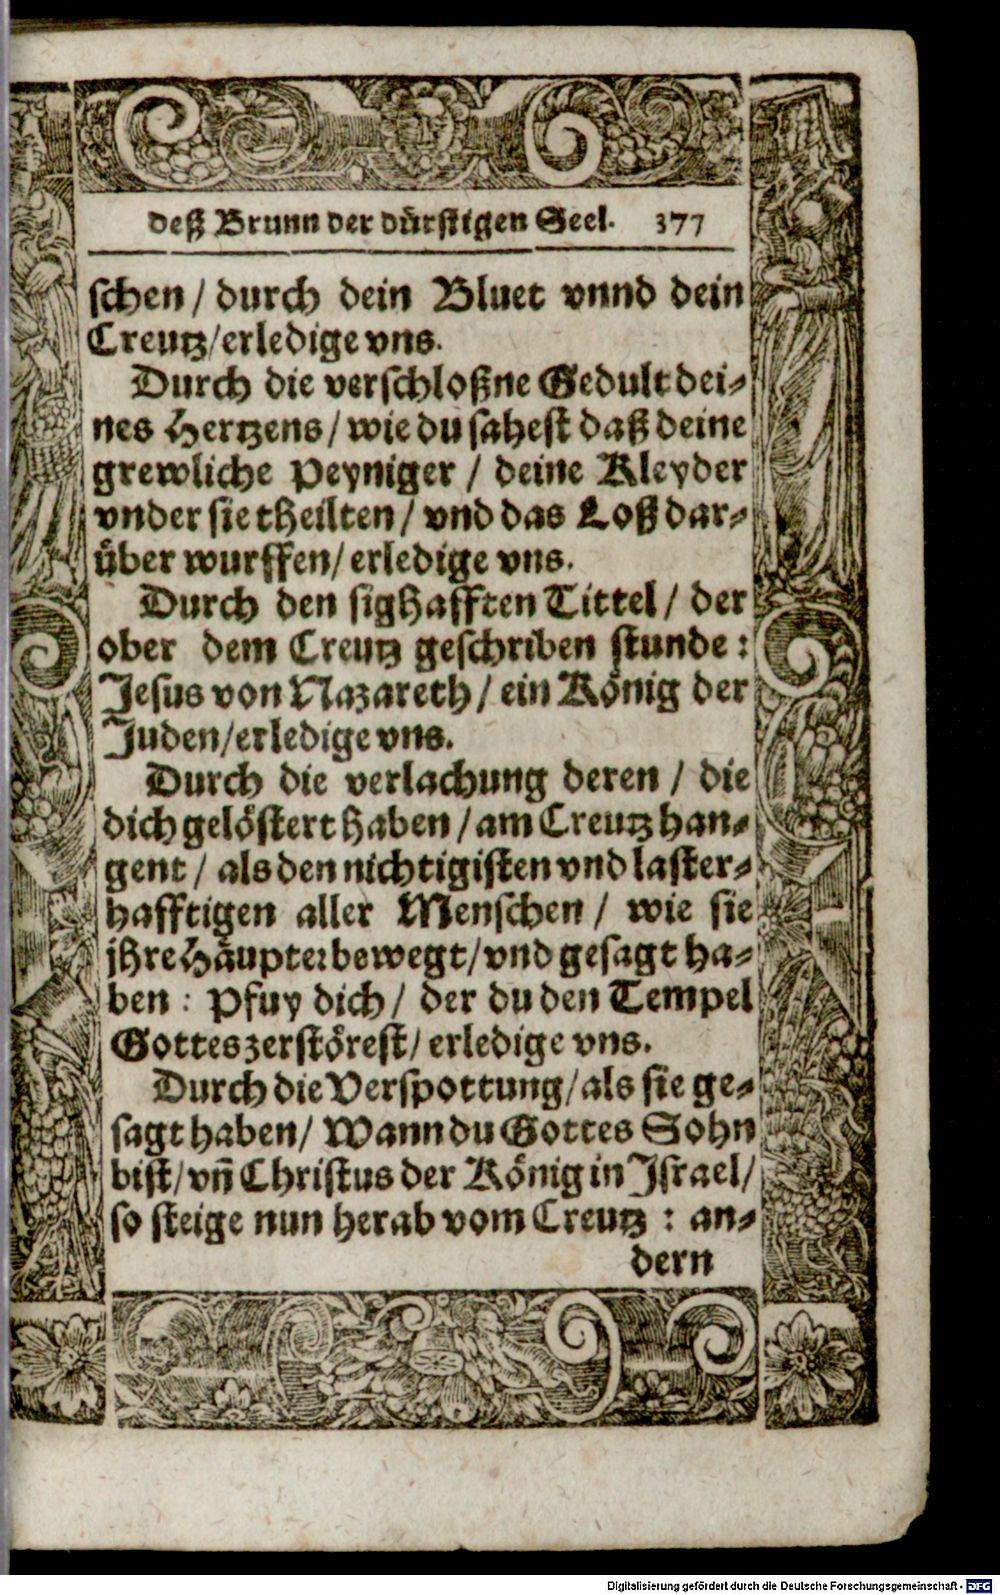 deß Brunn der dürstigen Seel. 377
schen / durch dein Bluet vnnd dein
Creutz/erledige vns.
Durch die verschloßne Gedult dei-
nes Hertzens / wie du sahest daß deine
grewliche Peyniger / deine Kleyder
vnder sie theilten / vnd das Loß dar-
über wurffen/ erledige vns.
Durch den sighafften Tittel / der
ober dem Creutz geschriben stunde :
Jesus von Nazareth / ein König der
Juden/erledige vns.
Durch die verlachung deren / die
dich gelöstert haben / am Creutz han-
gent / als den nichtigisten vnd laster-
hafftigen aller Menschen / wie sie
jhre Häupter bewegt/vnd gesagt ha-
ben : Pfuy dich / der du den Tempel
Gottes zerstörest/ erledige vns.
Durch die Verspottung/als sie ge-
sagt haben/ Wann du Gottes Sohn
bist/vñ Christus der König in Jsrael/
so steige nun herab vom Creutz : an-
dern
Digitalisierung gefördert durch die Deutsche Forschungsgemeinschaft - DFG